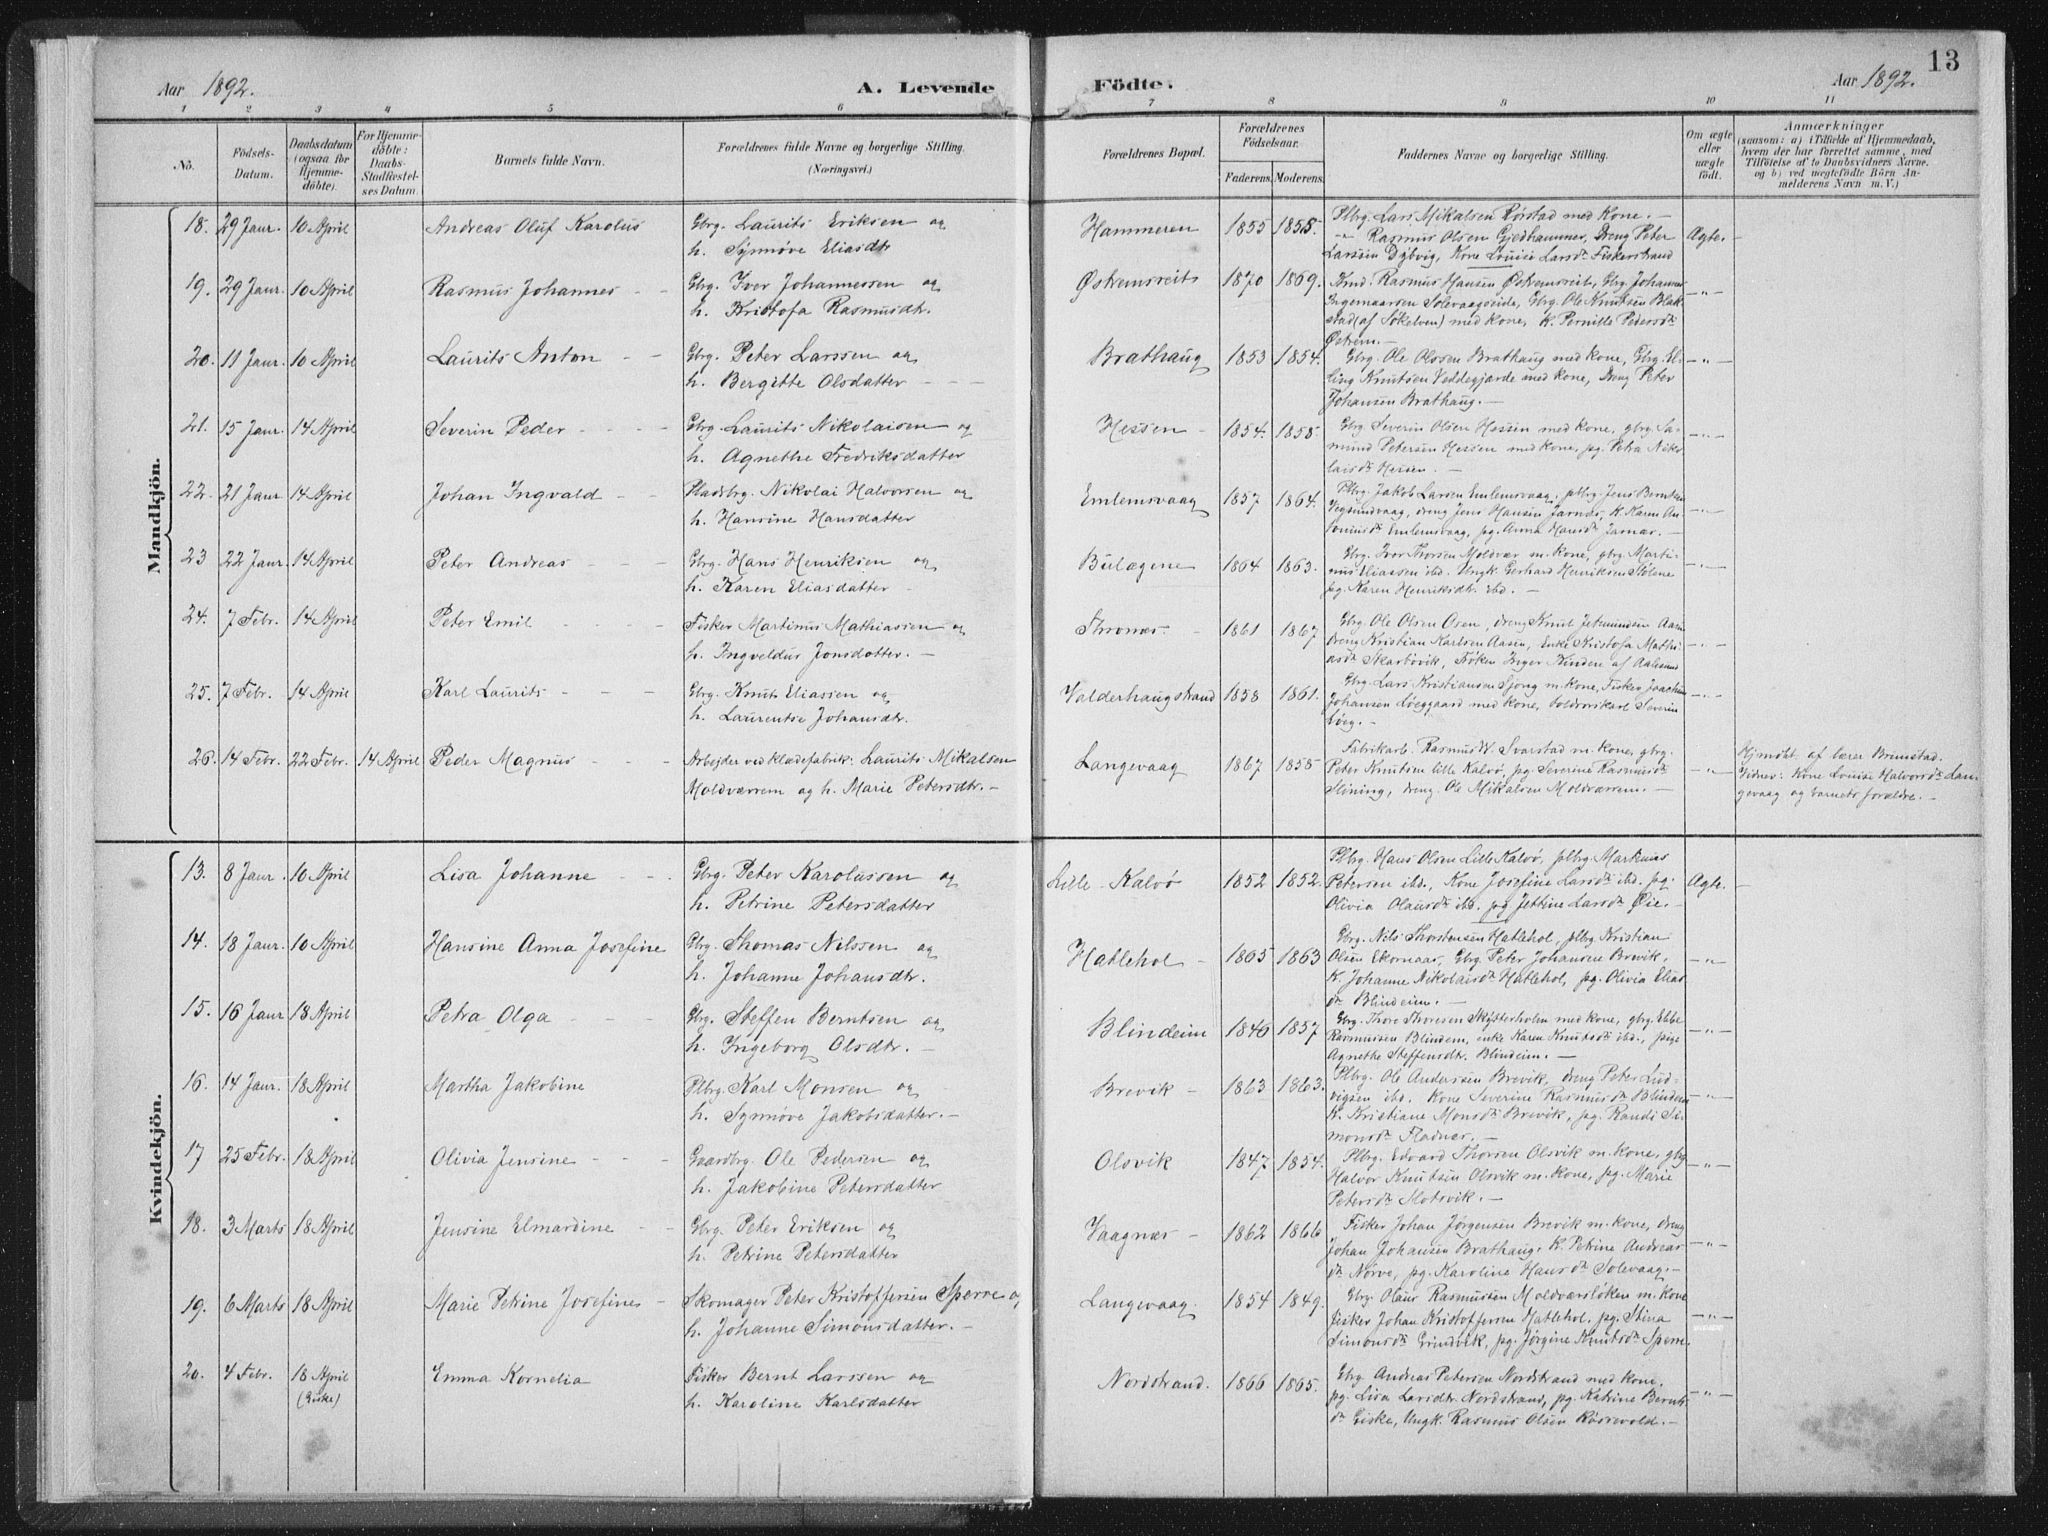 13
Aar 1892. A. Levende Födte. Aar 1892.
1 2 3 4 5 6 7 8 9 10 11
No. Födsels-Datum. Daabsdatum (ogsaa for Hjemmedöbte). For Hjemmedöbte: Daabs-Stadfæstelses Datum. Barnets fulde Navn. Forældrenes fulde Navne og borgerlige Stilling. (Næringsvei.) Forældrenes Bopæl. Forældrenes Födselsaar. Faderens. Moderens. Faddernes Navne og borgerlige Stilling. Om ægte eller uægte födt. Anmærkninger
(saasom: a) i Tilfælde af Hjemmedaab, hvem der har forrettet samme, med Tilföielse af to Daabsvidners Navne. og b) ved uægtefödte Börn Anmelderens Navn m. V.)
Mandkjön.
18. 29 Jaur. 10 April Andreas Oluf Karolus Gbrg. Laurits Eriksen og
h. Synnøve Eliasdtr
Hammeren 1855 1855. Plbrg. Lars Mikalsen Rørstad med Kone. —
—"— Rasmus Olsen Gjedhammer, Dreng Peter Ægte. —
Larssen Dybvig, Kone Louise Larsdr Fiskerstrand
19. 29 Jaur. 10 April Rasmus Johannes — — Gbrg. Iver Johannessen og
h. Kristofa Rasmusdtr.
Østremsreits 1870 1869. Kmd. Rasmus Hansen Østremsreit, Gbrg Johannes —"—
Ingemaarsen Solevaagseide, Gbrg. Ole Knutsen Blakstad (af Søkelven) med kone, K. Pernille Pedersdr
Østrem. —
20. 11 Jaur. 10 April Laurits Anton — — Gbrg. Peter Larssen og
h. Bergitte Olsdatter — — —
Brathaug 1853 1854. Gbrg. Ole Olssen Brathaug med kone, Gbrg. El- —"—
ling Knutsen Veddegjærde med kone, Dreng Peter
Johansen Brathaug. —
21. 15 Jaur. 14 April Severin Peder — — — — Gbrg. Laurits Nikolaisen og
h. Agnethe Fredriksdatter
Hessen — 1854. 1858. Gbrg. Severin Olsen Hessen med kone, gbrg. Sa- —"—
mund Petersen Hessen med kone, pg. Petra Niko
laisdr Hessen. —
22. 21 Jaur 14 April Johan Ingvald — — Pladsbrg. Nikolai Halvorsen og
h. Hansine Hansdatter
Emlemsvaag 1857 1864. Plbrg. Jakob Larsen Emlemsvaag, plbrg. Jens Berntsen —"—
Vegsundvaag, dreng Jens Hansen Jarnæs, K. Karen An
toniusdr Emlemsvaag, pg. Anna Hansdr Jarnæs. —
23 22 Jaur. 14 April Peter Andreas — — — Gbrg. Hans Henriksen og
h. Karen Eliasdatter —
Bulægene 1864 1863. Gbrg. Iver Thorsen Moldvær m. kone, gbrg. Marti- —"—
nus Eliassen ibd. Ungk. Gerhard Henriksen Stölene
pg. Karen Henriksdtr. ibd. —
24. 7 Febr. 14 April Peter Emil — — — — Fisker Martinus Mathiassen og
h. Ingveldur Jonsdatter. —
Thronæs. — 1861 1867 Gbrg Ole Olsen Osen, dreng Knut Jetmundsen Aasen —"—
dreng Kristian Karlsen Aasen, Enke Kristofa Mathi
asdr Skarbövik, Frøken Inger Kinden af Aalesund
25. 7 Febr. 14 April Karl Laurits — — — Gbrg. Knut Eliassen og
h. Laurentse Johansdtr.
Valderhaugstrand 1858 1861. Gbrg Lars Kristiansen Gjöng m. kone, Fisker Joachim —"—
Johansen Löeggaard med kone, Soldvorskarl Severin
Löeg. —
26. 14 Febr. 22 Febr. 14 April Peder Magnus — — Arbejder ved Klædefabrik: Laurits Mikalsen
Moldværrem og h. Marie Petersdtr. —
Langevaag 1867 1858 Fabrikarb. Rasmus W. Svorstad m. kone, gbrg. —"— Hjmdbt. af lærer Brunstad.
Peter Knutsen Lille Kalvö, pg. Severine Rasmusdr Vidner: Kone Louise Halvorsdr Lan-
Slöning, dreng. Ole Mikalsen Moldværrem. — gevaag og barnets forældre. —
Kvindekjön.
13. 8 Jaur. 10 April Lisa Johanne — — Gbrg. Peter Karolussen og
h. Petrine Petersdatter
Lille Kalvö 1852 1852. Plbrg. Hans Olsen Lille Kalvö, plbrg. Markus
Petersen ibd., Kone Josefine Larsdr ibd. pg. Ægte. —
Olivia Olausdr ibd. pg Jettine Larsdr Øie. —
14. 18 Jaur. 10 April Hansine Anna Josefine Gbrg. Thomas Nilssen og
h. Johanne Johansdtr.
Hatlehol — 1865 1863 Gbrg. Nils Thorstensen Hatlehol, plbrg Kristian
Olsen Ekornaas, Gbrg Peter Johansen Brevik, —"—
K. Johanne Nikolaisdr Hatlehol, pg. Olivia Elias
dr Blindeim. —
15. 16 Jaur 18 April Petra Olga — — — Gbrg. Steffen Berntsen og
h. Ingeborg Olsdtr. —
Blindeim 1840 1857 Gbrg. Thore Thoresen Skytterholm med kone, gbrg Ebbe
Rasmussen Blindem, enke Karen Knutsdr ibd., pige —"—
Agnethe Steffensdtr. Blindeim. —
16. 14 Jaur. 18 April Martha Jakobine Plbrg. Karl Monsen og —
h. Synnøve Jakobsdatter. —
Brevik — 1863 1863. Plbrg. Ole Anderssen Brevik, dreng Peter Lud-
vigsen ibd. Kone Severine Rasmusdr Blindem —"—
K. Kristiane Monsdr Brevik, pg. Randi Si-
monsdr Fladnæs. —
17 25 Febr. 18 April Olivia Jensine — — Gaardbrg. Ole Pedersen og
h. Jakobine Petersdatter
Olsvik 1847 1854. Plbrg. Edvard Thorsen Olsvik m. kone, gbrg —"—
Halvor Knutsen Olsvik m. kone, pg. Marie
Petersdr Slotsvik. —
18. 3 Marts 18 April Jensine Elmardine — — Gbrg. Peter Eriksen og
h. Petrine Petersdatter
Vaagnæs — 1862 1866 Fisker Johan Jörgensen Brevik m. kone, dreng
Johan Johansen Brathaug. K. Petrine Andreas —"—
dr Nörve, pg. Karoline Hansdr Solevaag. —
19. 6 Marts 18 April Marie Petrine Josefine — Skomager Peter Kristoffersen Sperre og
h. Johanne Simonsdatter. —
Langevaag. 1854 1849. Gbrg. Olaus Rasmussen Moldværslöken m. kone
fisker Johan Kristoffersen Hatlehol, pg. Stina —"—
Simonsdr Grindvik, pg. Jörgine Knutsdr Sperre.
20. 4 Febr. 18 April Emma Kornelia Fisker Bernt Larssen og
(Giske) h. Karoline Karlsdatter
Nordstrand. 1866 1865. Gbrg Andreas Petersen Nordstrand med kone.
pg. Lisa Larsdtr. Nordstrand, pg. Katrine Bernts —"—
dr Giske, Ungk. Rasmus Olsen Rösevold. —